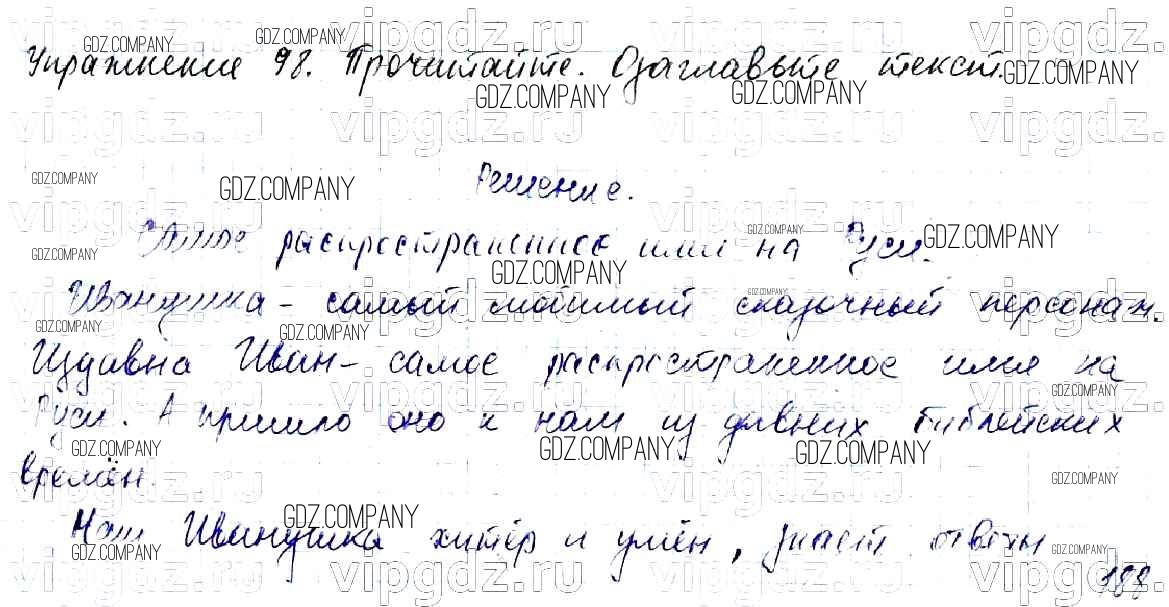 Упражнение 98. Прочитайте. Озаглавьте текст.
Решение.
Самое распространенное имя на Руси.
Иванушка - самый любимый сказочный персонаж.
Издавна Иван - самое распространенное имя на
Руси. А пришло оно к нам из давних библейских
времён.
Наш Иванушка хитёр и умён, знает ответы
188
GDZ.COMPANY
vipgdz.ru